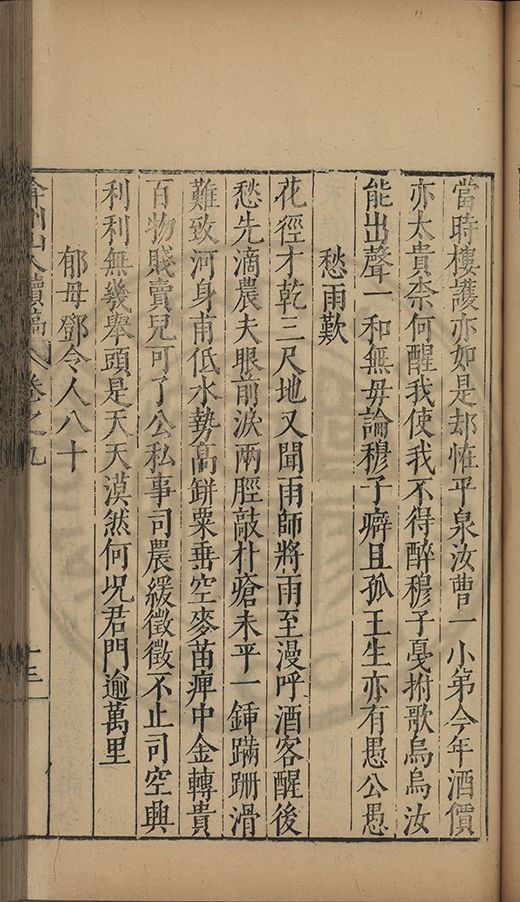 當時樓護亦如是却恠平泉汝曹一小弟今年酒價
亦太貴柰何醒我使我不得醉穆子戞拊歌烏烏汝
能出聲一和無毋論穆子癖且孤王生亦有愚公愚
愁雨歎
花徑才乾三尺地又聞雨師將雨至漫呼酒客醒後
愁先滴農夫眼前淚兩脛敲朴瘡未平一鍤蹣跚滑
難致河身甫低水勢高缾粟垂空麥苗痺中金轉貴
百物賤賣兒可了公私事司農緩徵徵不止司空興
利利無幾舉頭是天天漠然何况君門逾萬里
郁母鄧令人八十
弇州山人續稿 卷之九
十三